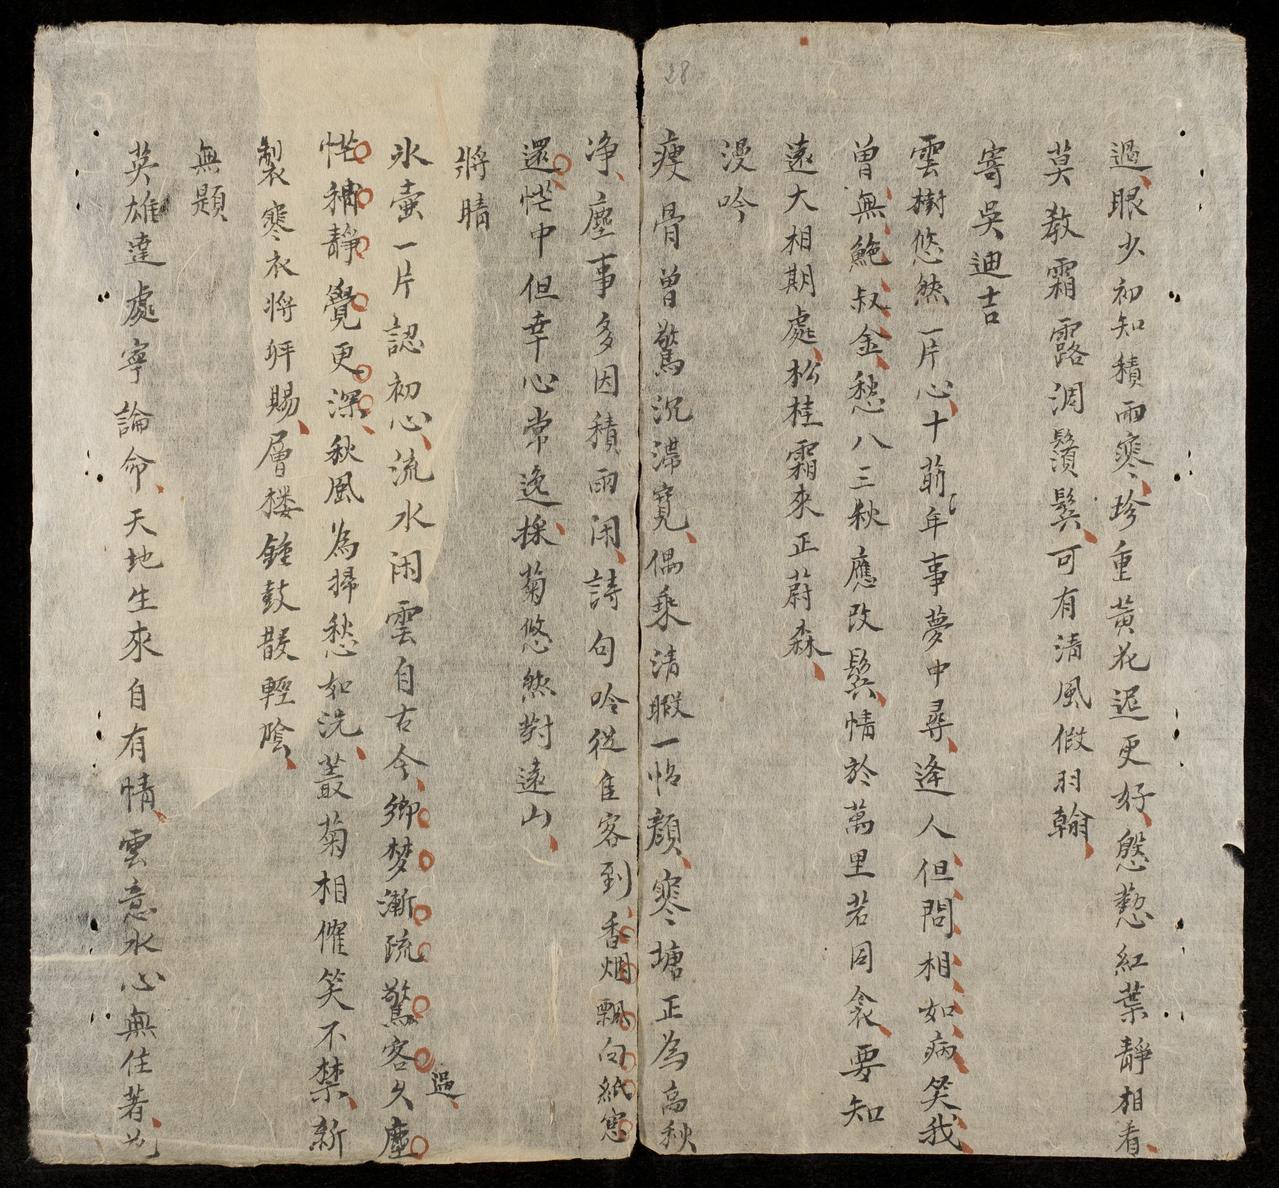 28
過眼少初知積雨寒珍重黃花遲更好慇懃紅葉靜相看
莫教霜露凋鬚鬓可有清風假羽翰
寄吳迪吉
雲樹悠然一片心十年前事夢中尋逢人但問相如病笑我
曾無鮑叔金愁八三秋應改鬓情於萬里若同衾要知
遠大相期處松桂霜來正蔚森
漫吟
瘦骨曾驚沉滯寬偶乘清暇一怡顏寒塘正為高秋
淨塵事多因積雨閑詩句吟從佳客到香烟飄向紙窓
還忙中但幸心常逸採菊悠然對遠山
將晴
氷壺一片認初心流水闲雲自古今鄉梦漸疏驚客久塵
過
忙補靜覺更深秋風為掃愁如洗叢菊相催笑不禁新
製寒衣將拜賜層楼鐘鼓散輕陰
無題
英雄達處寧論命天地生來自有情雲意水心無住著